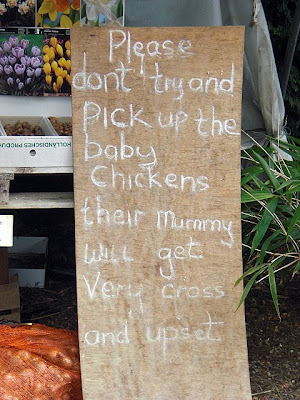 Please
don't try and
Pick up the
baby
Chickens
their mummy
will get
Very cross
and upset
HOLLANDISCHES PRODU